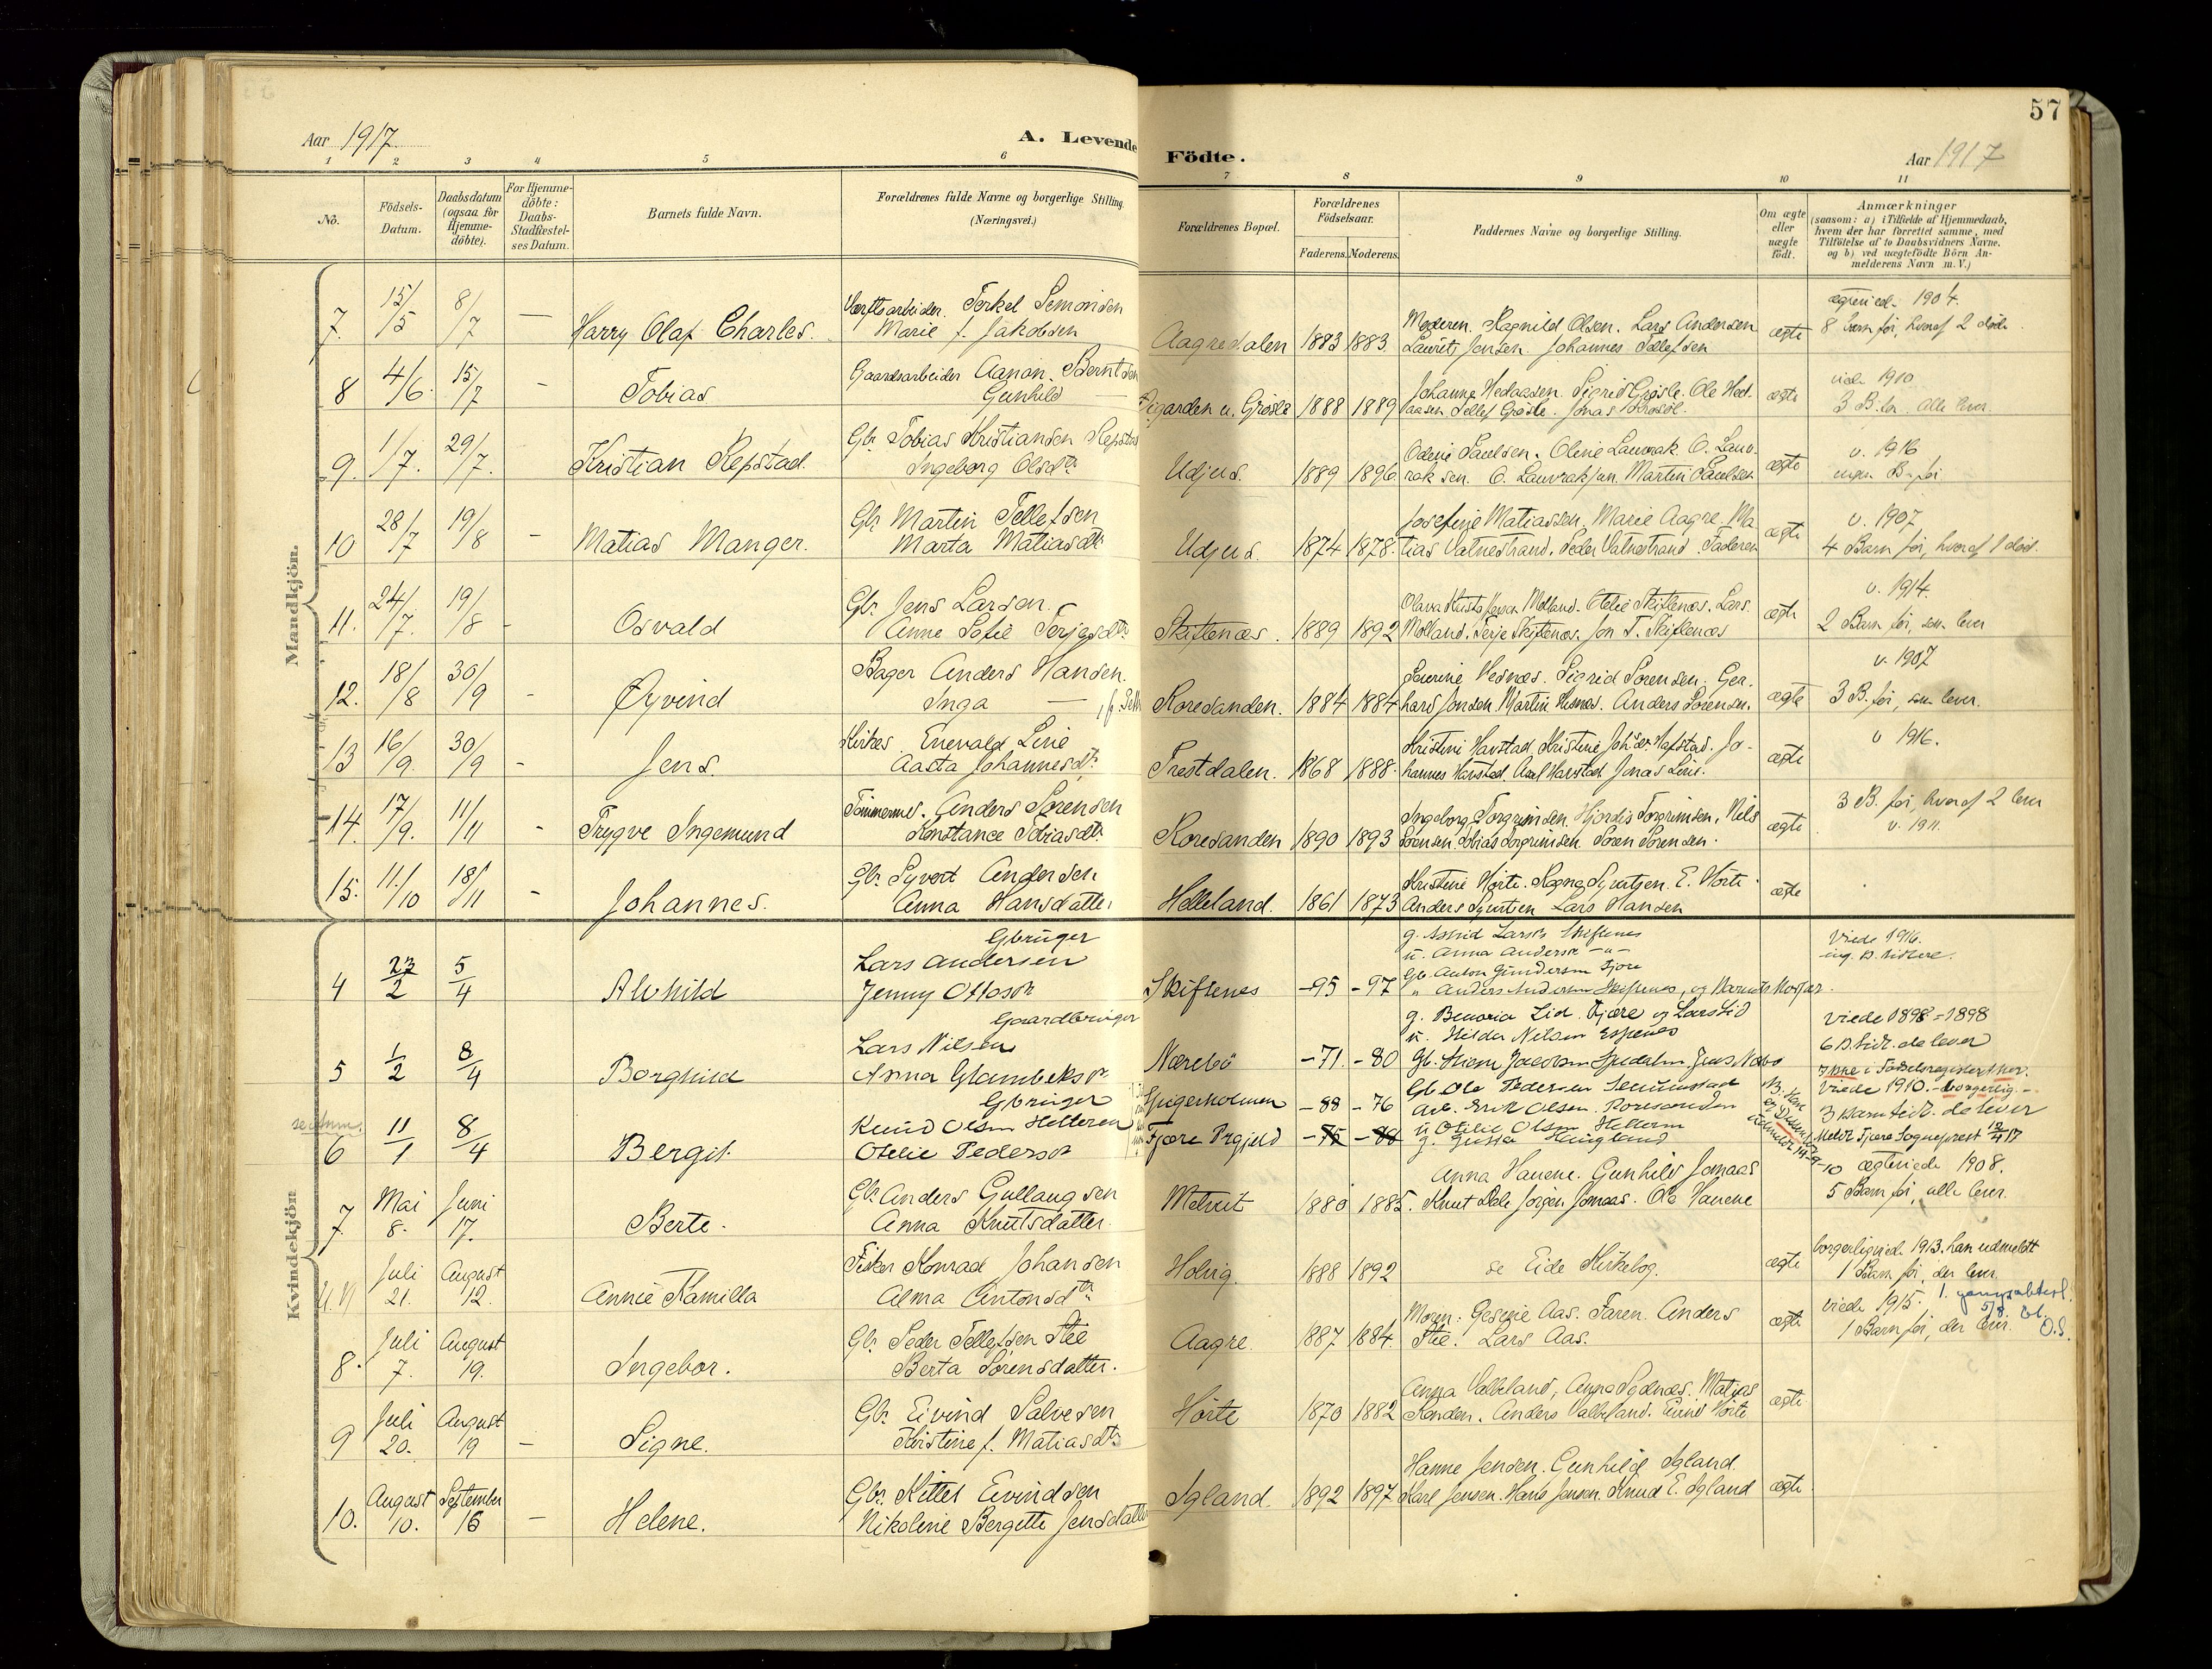 57
Aar 1917
A. Levende
Födte.
Aar 1917
1 2 3 4 5 6 7 8 9 10 11
No.
Födsels-
Datum.
Daabsdatum
(ogsaa for
Hjemme-
döbte).
For Hjemme-
döbte:
Daabs-
Stadfæstel-
ses Datum.
Barnets fulde Navn.
Forældrenes fulde Navne og borgerlige Stilling.
(Næringsvei.)
Forældrenes Bopæl.
Forældrenes
Födselsaar.
Faderens. Moderens.
Faddernes Navne og borgerlige Stilling.
Om ægte
eller
uægte
födt.
Anmærkninger
(saasom: a) i Tilfælde af Hjemmedaab,
hvem der har forrettet samme, med
Tilföielse af to Daabsvidners Navne,
og b) ved uægtefödte Börn An-
melderens Navn m.V.)
Mandkjön.
7. 15/5 8/7 — Harry Olaf Charles.
Værftsarbeider. Terkel Semonsen
Marie f. Jakobsen
Aagredalen 1883 1883
Moderen. Ragnild Olsen. Lars Andersen
Laurits Jensen. Johannes Tellefsen
ægte
1904.
8 barn før, hvoraf 2 døde
8 4/6. 15/7 - Tobias
Gaardsarbeider Aanon. Berntsen
Gunhild —
u. Grøsle 1888 1889
Johanne Hedaasen. Sigrid Grøsle. Ole Hed-
aasen. Tellef Grøsle. Jonas
ægte
viede 1910
3 B. før. Alle lever.
9. 1/7. 29/7. Kristian Repstad.
Gbr. Tobias Kristiansen Repstad
Ingeborg Olsdtr
Udjus. 1889 1896
Paulsen. Oline Lauvrak. O. Lauv-
rak sen. O. Lauvrak jun. Martin Paulsen
ægte
v. 1916
ingen B. før
10 28/7 19/8 - Matias Manger.
Gbr. Martin Tellefsen
Marta Matiasdtr
Udjus. 1874 1878.
Josefine Matiassen. Marie Aagre. Ma-
tias Vatnestrand. Peder Vatnestrand. Faderen
ægte
v. 1907
4 Barn før, hvoraf 1 død.
11. 24/7. 19/8 - Osvald
Gbr. Jens Larsen.
Anne Sofie Terjesdtr
Skiftenæs. 1889 1892
Molland. Otelie Skiftenæs. Lars
Molland. Terje Skiftenæs. Jon T. Skiftenæs
ægte
v. 1914.
2 Barn før, som lever
12. 18/8 30/9 - Øyvind
Bager Anders Hansen.
Inga —
Roresanden. 1884 1884
Laurine Hesnæs. Sigrid Sørensen. Ger-
hard Jonsen. Martin Hesnæs. Anders Sørensen.
ægte
v. 1907
3 B. før, som lever.
13 16/9. 30/9 - Jens.
Enevald Line
Aasta Johannesdtr
Trestdalen. 1868 1888.
Kristine Havstad. Kristine Havstad. Jo-
hannes Havstad. Axel Havstad. Jonas Line.
ægte
v 1916.
14. 17/9. 11/11 - Trygve Ingemund
Tømmermd. Anders Sørensen
Konstance Tobiasdtr.
Roresanden 1890 1893
Ingeborg Torgrimsen. Hjordis Torgrimsen. Nils
Sørensen. Tobias Torgrimsen. Søren Sørensen.
ægte
3 B. før, hvoraf 2 lever
v. 1911.
15. 11/10 18/11 - Johannes.
Gbr. Syvert Andersen.
Anna Hansdatter
Helleland. 1861 1873
Kristine Hørte. Ragna Syvertsen. E. Hørte.
Anders Syvertsen Lars Hansen
ægte
Kvindekjön
4 23/2 5/4 Alvhild
Gbruger
Lars Andersen
Jenny Ottosdr
Skiftenes -95 -97
g. Astrid Larsen Skiftenes
u. Anna Andersen -"-
Gb. Anton Gundersen Fjære
" Anders Andersen Skiftenes, og Barnets Morfar.
Viede 1916.
ing. B. tidlere.
5 1/2 8/4 Borghild
Gaardbruger
Lars Nilsen
Anna
Nærebö -71. -80
g. Lid. Fjære og Lars Lid
u. Hilda Nilsen
Viede 1898 = 1898
6 B. tidl. de lever
6 11/1 8/4 Bergit.
Gbruger
Knud Olsen Helleren
Otelie Pedersdr
Fjære Prgjeld -88 -76
Gb Ole Pedersen
Arb. Erik Olsen. Roresanden
u Otelie Olsen Helleren
Viede 1910. - borgerlig. -
3 Barn tidl. de lever
Meldt Fjære Sogneprest 12/4 17
7. Mai 8. Juni 17. Berte.
Gbr Anders Gullaugsen
Anna Knutsdatter.
1880 1885.
Anna Hauene. Gunhild Jomaas
Knut Dale Jørgen Jomaas. Ole Hauene
ægteviede 1908.
5 Barn før, alle lever.
U.N Juli 21. August 12. Annie Kamilla
Fisker Konrad Johansen
Alma Antonsdtr
Holvig. 1888 1892
se Eide Kirkebog.
ægte
borgerligvied. 1913. han udmeldt
1 Barn før, der lever.
8. Juli 7. August 19. Ingebor.
Gbr. Peder Tellefsen Stie
Berta Sørensdatter.
Aagre. 1887 1884.
Moren: Gesine Aas. Faren. Anders
Stie. Lars Aas.
ægte
viede 1915.
1 Barn før, der lever.
O.S.
9 Juli 20. August 19 - Signe.
Gbr. Eivind Salvesen
Kristine f. Matiasdtr
Hørte 1870 1882
Anna Valleland, Matias
Anders Valleland. Eivind Hørte
ægte
10. August 10. September 16 - Helene.
Gbr. Kittel Eivindsen
Nikoline Bergette Jensdatter
Igland. 1892 1897
Hanne Jensen. Gunhild Igland.
Karl Jensen. Hans Jensen. Knud E. Igland
ægte